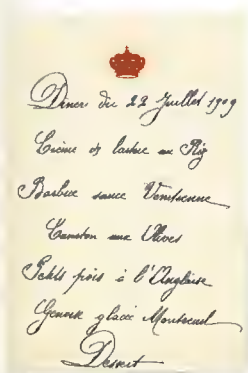 Diner du 22 Juillet 1909
Crème de laitue au Riz
Barbue sauce Venitienne
Caneton aux Olives
Petits pois à l'Anglaise
Genoise glacée Montreuil
Dessert